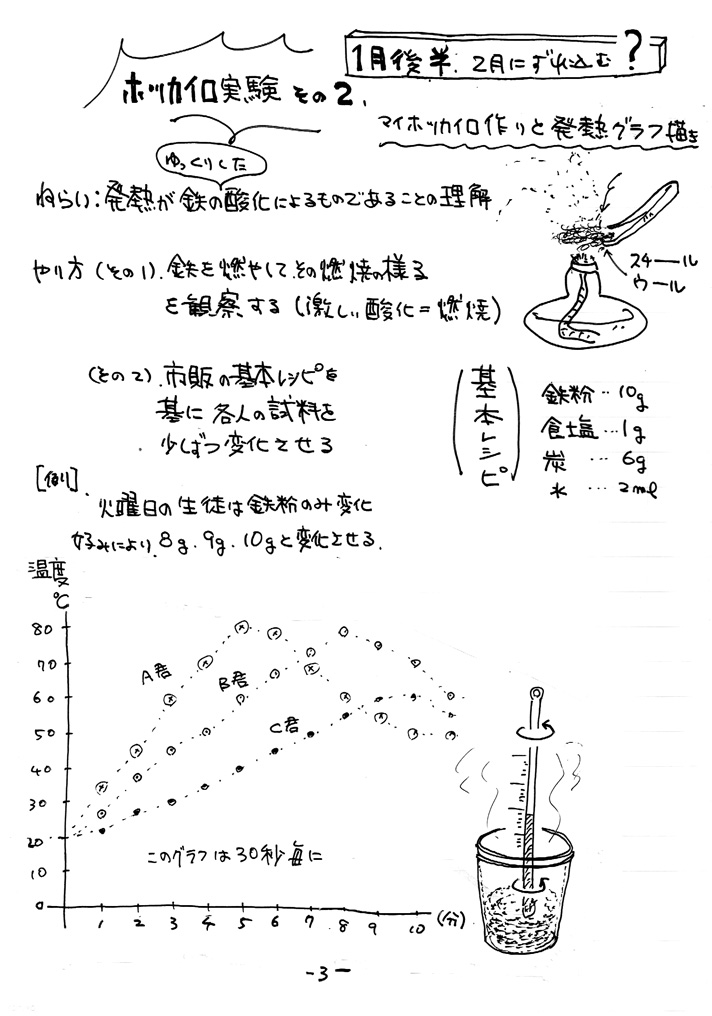 1月後半.2月にずれ込む?
ホッカイロ実験 その2.
マイホッカイロ作りと発熱グラフ描き
ゆっくりした
ねらい:発熱が鉄の酸化によるものであることの理解
やり方(その1).鉄を燃やしてその燃焼の様る
を観察する(激しい酸化=燃焼)
スチール
ウール
(その2).市販の基本レシピを
基に各人の試料を
少しずつ変化させる
(基本レシピ)
鉄粉…10g
食塩…1g
炭…6g
水…2ml
[例].
火曜日の生徒は鉄粉のみ変化
好みにより.8g.9g.10gと変化させる.
温度
℃
80
70
60
50
40
30
20
10
0
A君
B君
C君
このグラフは30秒毎に
1 2 3 4 5 6 7 8 9 10 (分)
-3-